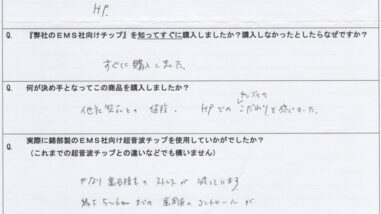 HP.
Q. 『弊社のEMS社向けチップ』を知ってすぐに購入しましたか？購入しなかったとしたらなぜですか？
すぐに購入しました。
Q. 何が決め手となってこの商品を購入しましたか？
チップの
他社製品との値段、HPでのこだわりを感じました。
Q. 実際に錦部製のEMS社向け超音波チップを使用していかがでしたか？
（これまでの超音波チップとの違いなどでも構いません）
かなり歯石除去のストレスが減っています
5〜6mmまでの歯周のコントロールが